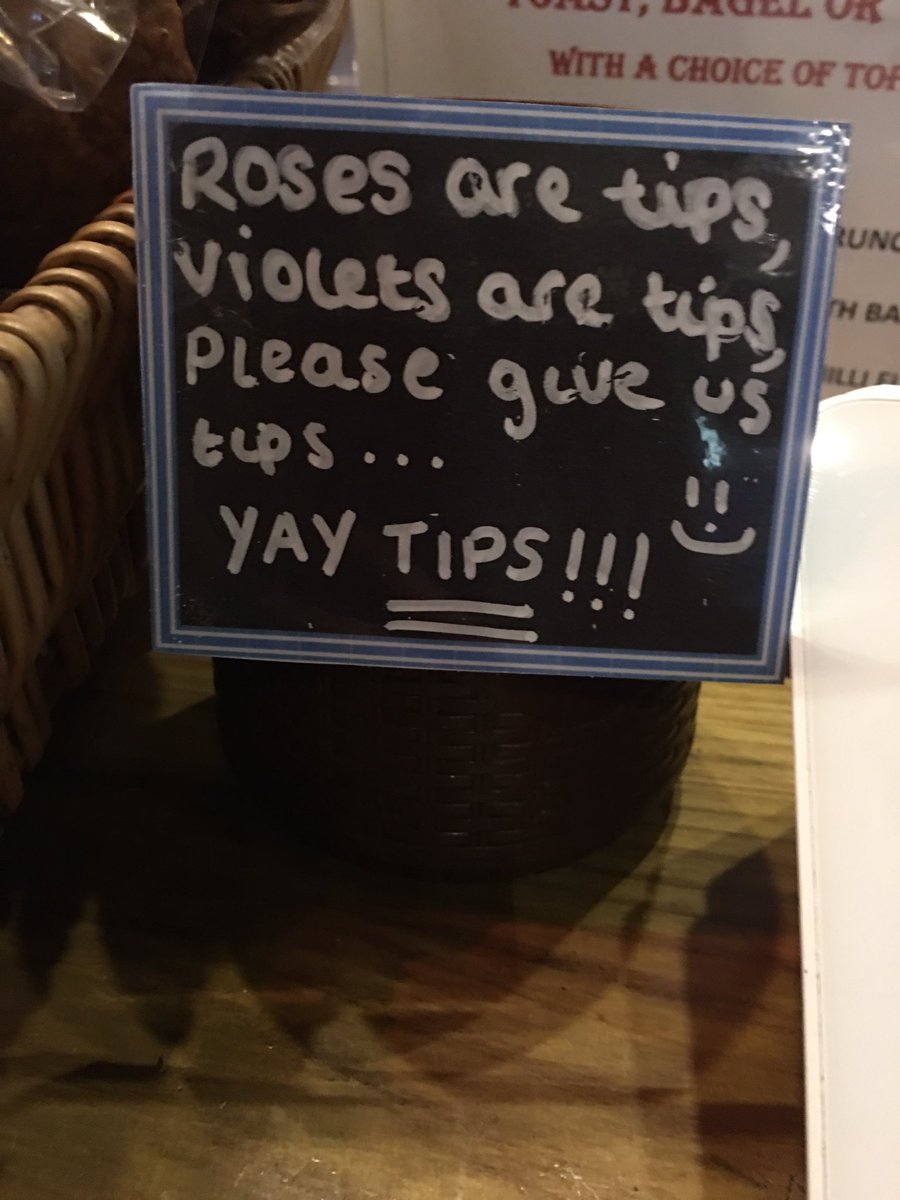 TOAST, BAGEL OR
WITH A CHOICE OF
Roses are tips,
violets are tips,
Please give us
tips...
YAY TIPS!!!